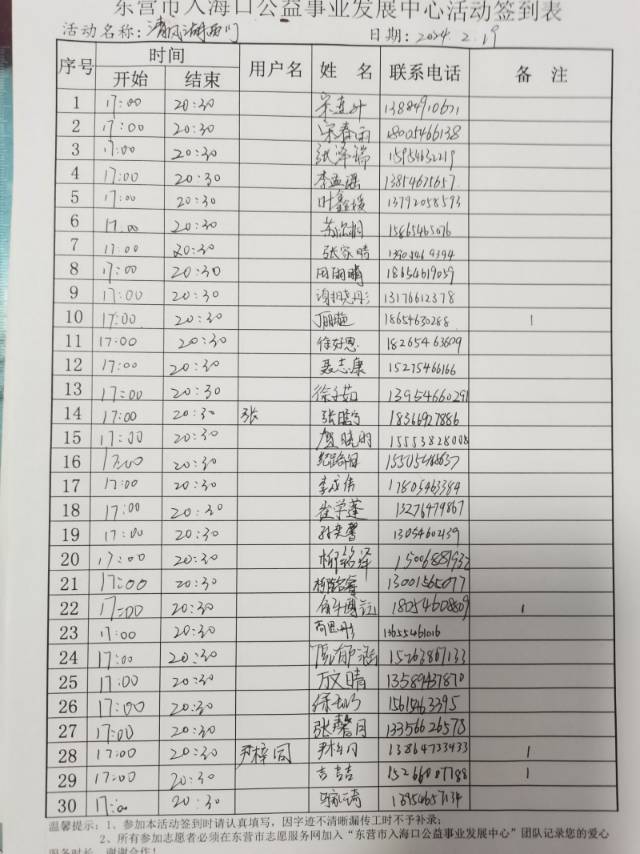 东营市入海口公益事业发展中心活动签到表
活动名称: 日期: 2024.2.19
序号 时间 用户名 姓名 联系电话 备注
开始 结束
1 17:00 20:30 13884910671
2 17:00 20:30 宋春雨 18005466138
3 17:00 20:30 张泽瑞 15954632219
4 17:00 20:30 李孟瑶 13854675657
5 17:00 20:30 叶鑫 13792058593
6 17:00 20:30 15865465076
7 17:00 20:30 张家晴
8 17:00 20:30 18654619059
9 17:00 20:30 13176612378
10 17:00 20:30 18654630288 1
11 17:00 20:30 徐好恩 18265463609
12 17:00 20:30 聂志康 15275466166
13 17:00 20:30 徐子茹 13954660291
14 17:00 20:30 张 18366927886
15 17:00 20:30 贺晓明 15553828008
16 17:00 20:30
17 17:00 20:30 李成伟 17805463384
18 17:00 20:30 崔学蓬 15276479867
19 17:00 20:30 13054602139
20 17:00 20:30 柳铭泽 15006881932
21 17:00 20:30 13001565077
22 17:00 20:30 18054608809 1
23 17:00 20:30 13655461016
24 17:00 20:30 15263867133
25 17:00 20:30 方文晴 13589437870
26 17:00 20:30 15615463395
27 17:00 20:30 张馨月 13356626578
28 17:00 20:30 尹梓同 尹梓同 13864733433 1
29 17:00 20:30 吉喆 15266007188 1
30 17:00 20:30 18954657134
温馨提示:1、参加本活动签到时请认真填写,因字迹不清晰漏传工时不予补录;
2、所有参加志愿者必须在东营市志愿服务网加入“东营市入海口公益事业发展中心”团队记录您的爱心
服务时长,谢谢合作!